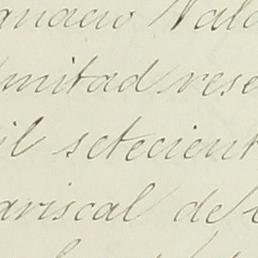 gnacio Vald
mitad rese
il setecient
ariscal de